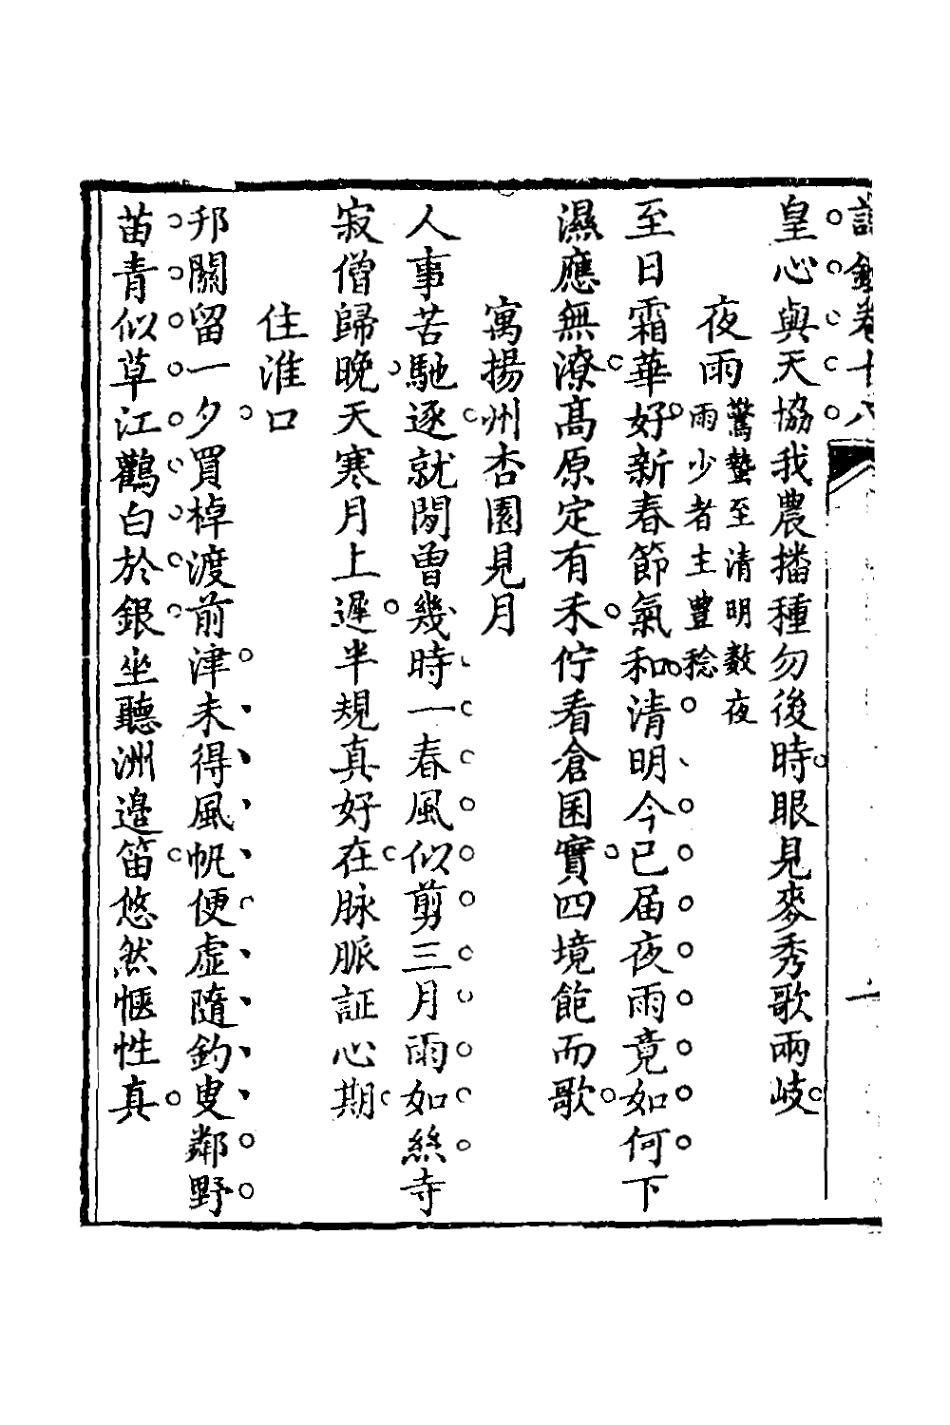 皇心與天協我農播種勿後時眼見麥秀歌兩岐
夜雨
驚蟄至清明數夜
雨少者主豐稔
至日霜華好新春節氣和清明今已届夜雨竟如何下
濕應無潦高原定有禾佇看倉囷實四境飽而歌
寓揚州杏園見月
人事苦馳逐就閒曾幾時一春風似剪三月雨如絲寺
寂僧歸晚天寒月上遲半規真好在脉脈証心期
住淮口
邗關留一夕買棹渡前津未得風帆便虛隨釣叟鄰野
苗青似草江鸛白於銀坐聽洲邉笛悠然愜性真